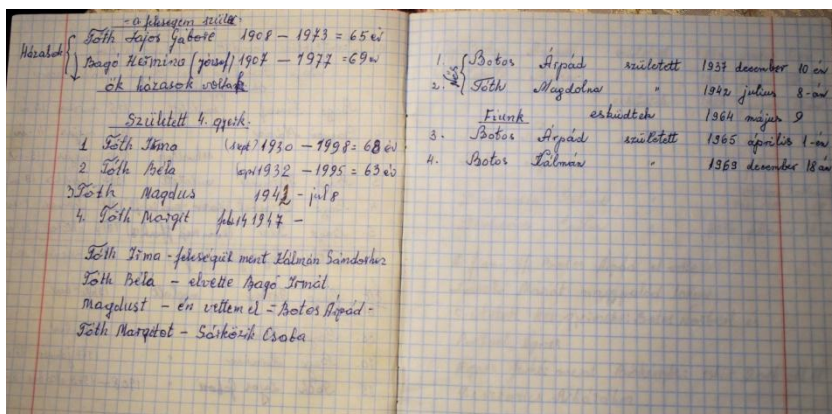 - a feleségem szülei
Házasok
Tóth Lajos Gáboré 1908 - 1973 = 65 év
Bagó Hermina (József) 1907 - 1977 = 69 év
ők házasok voltak
Született 4. gyerk.
1 Tóth Irma (szept) 1930 - 1998 = 68 év
2 Tóth Béla 1932 - 1995 = 63 év
3 Tóth Magdus 1942 - jul 8
4. Tóth Margit feb 14 1947 -
Tóth Irma - feleségül ment Kálmán Sándorhoz
Tóth Béla - elvette Bagó Irmát
Magdust - én vettem el = Botos Árpád -
Tóth Margitot - Sárközik Csaba
1. Botos Árpád született 1937 december 10 én
2. Nős Tóth Magdolna " 1942 julius 8-án
Fiunk esküdtek 1964 május 9
3. Botos Árpád született 1965 április 1-én
4. Botos Kálmán " 1969 december 18 án